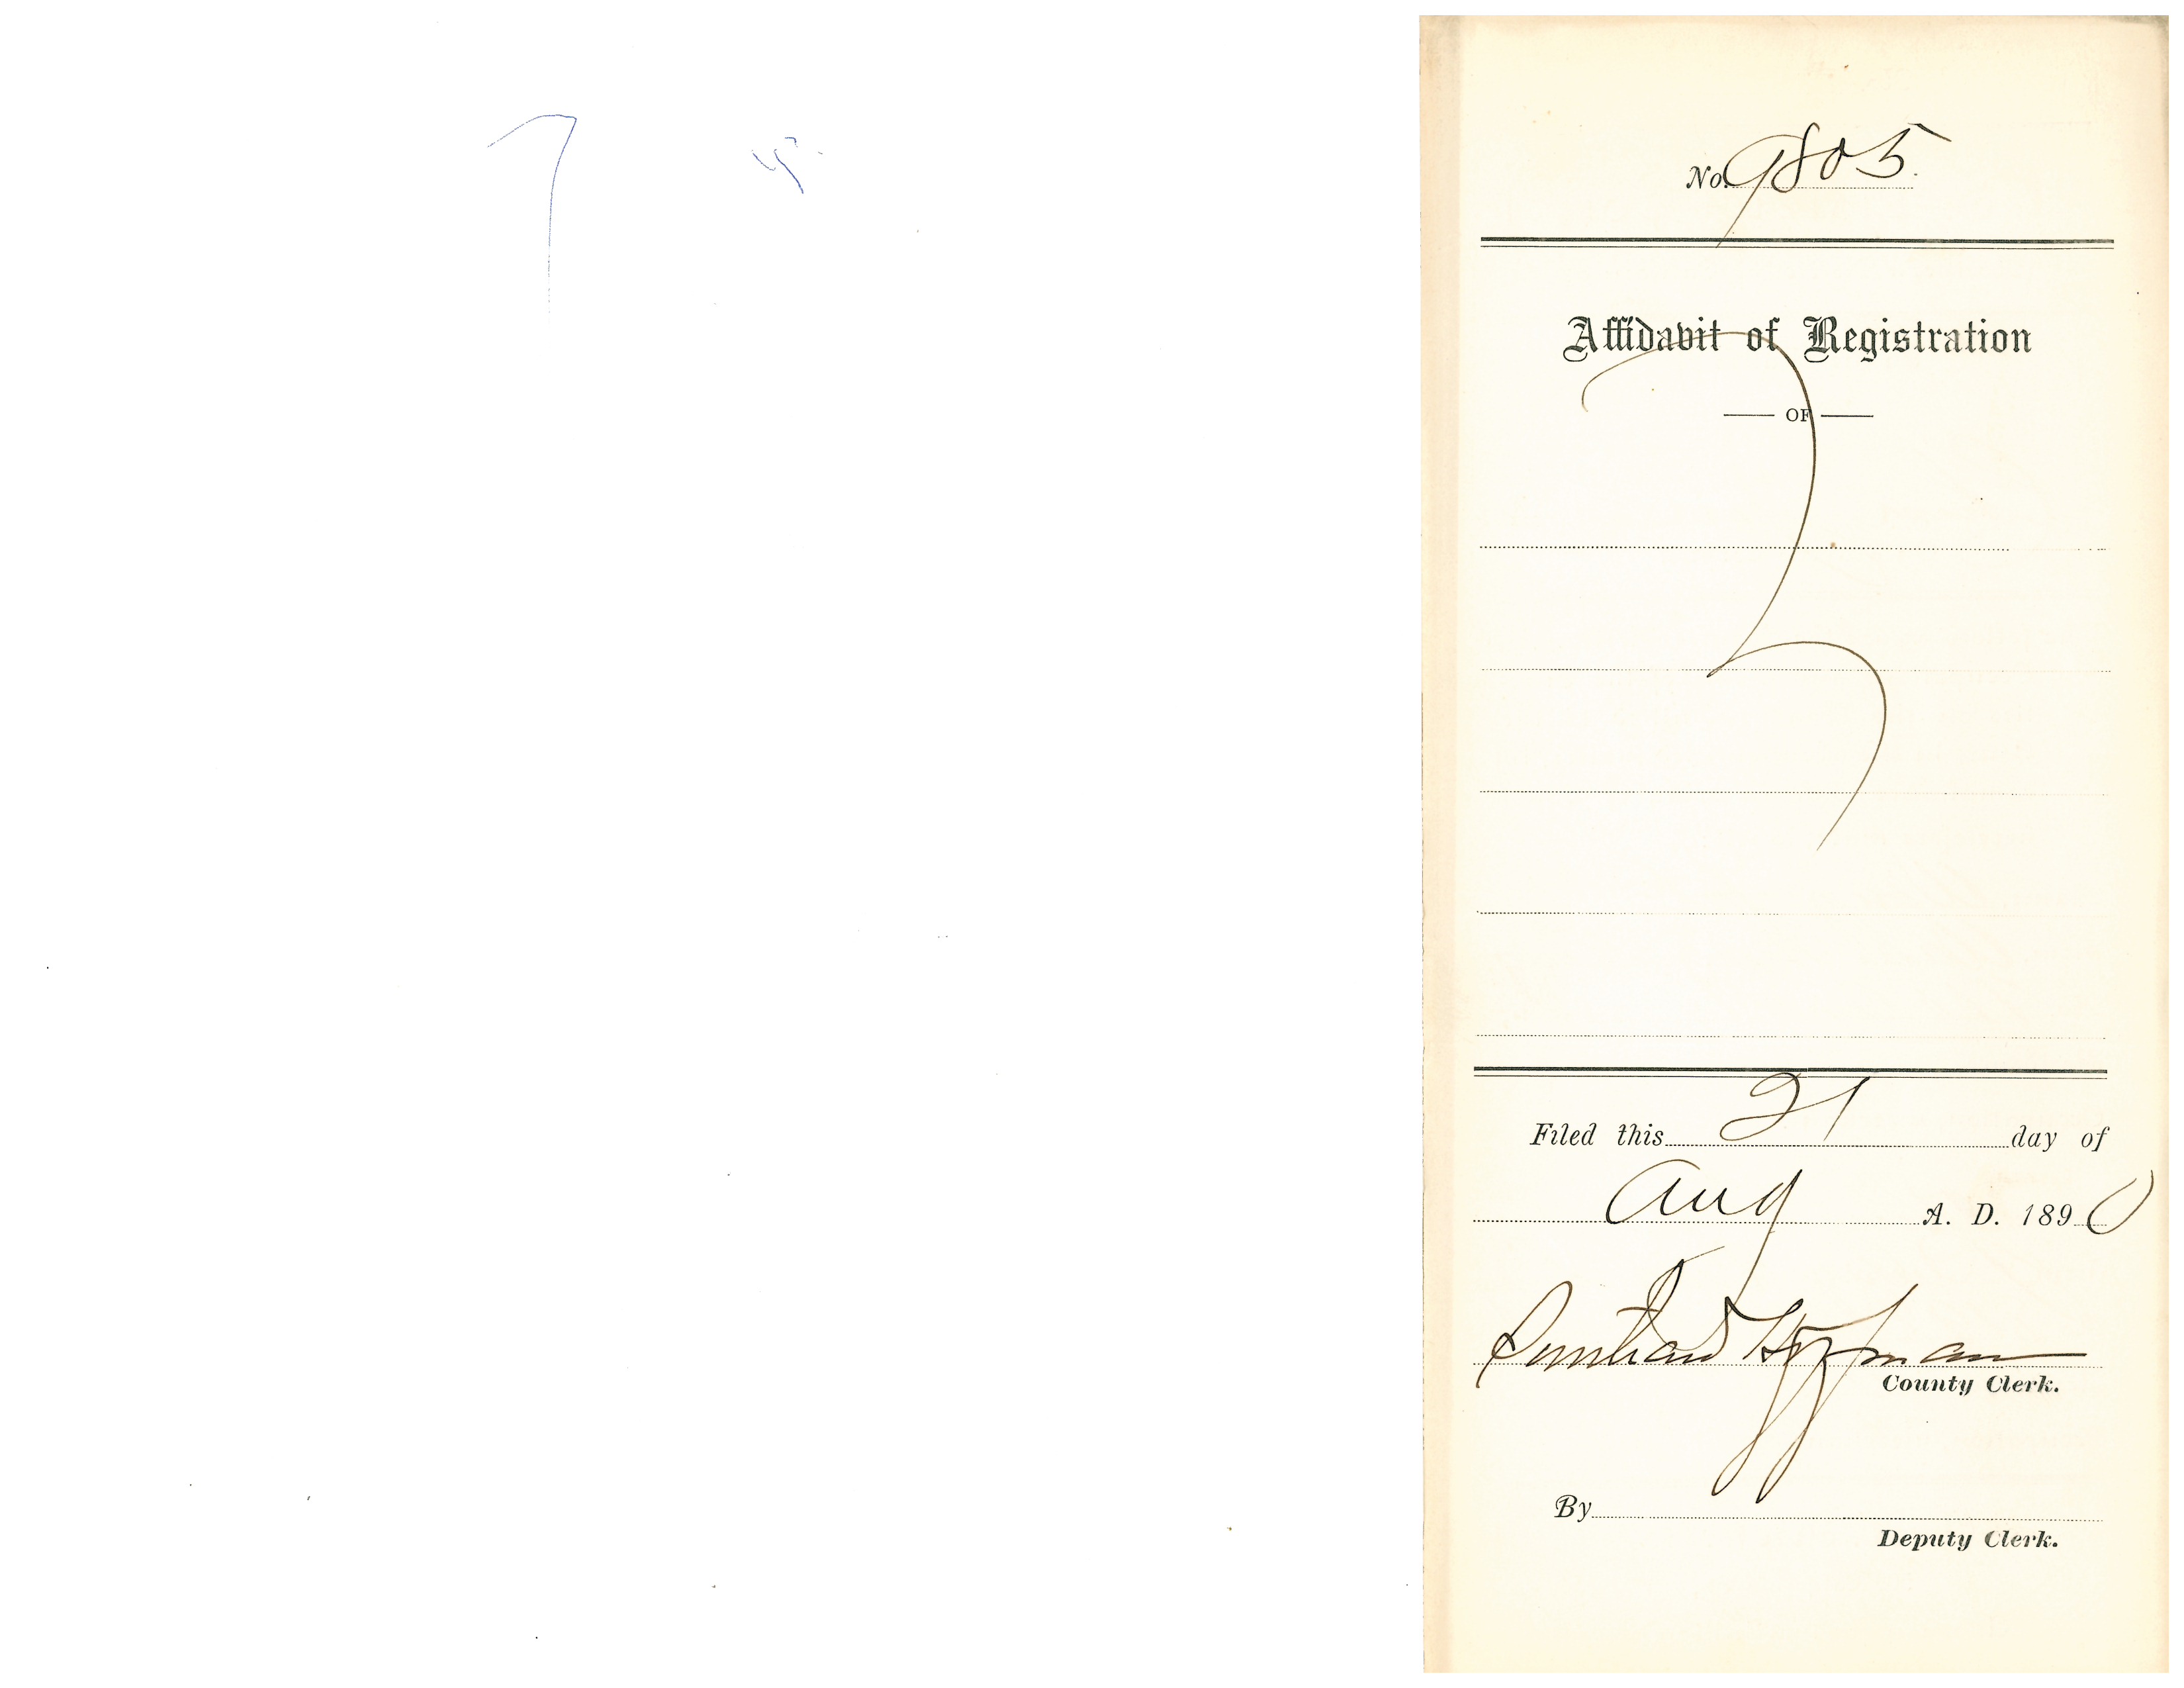 No. 9805
Affidavit of Registration
OF
Filed this 21 day of
Aug A. D. 1890
Hoffman
County Clerk.
By
Deputy Clerk.